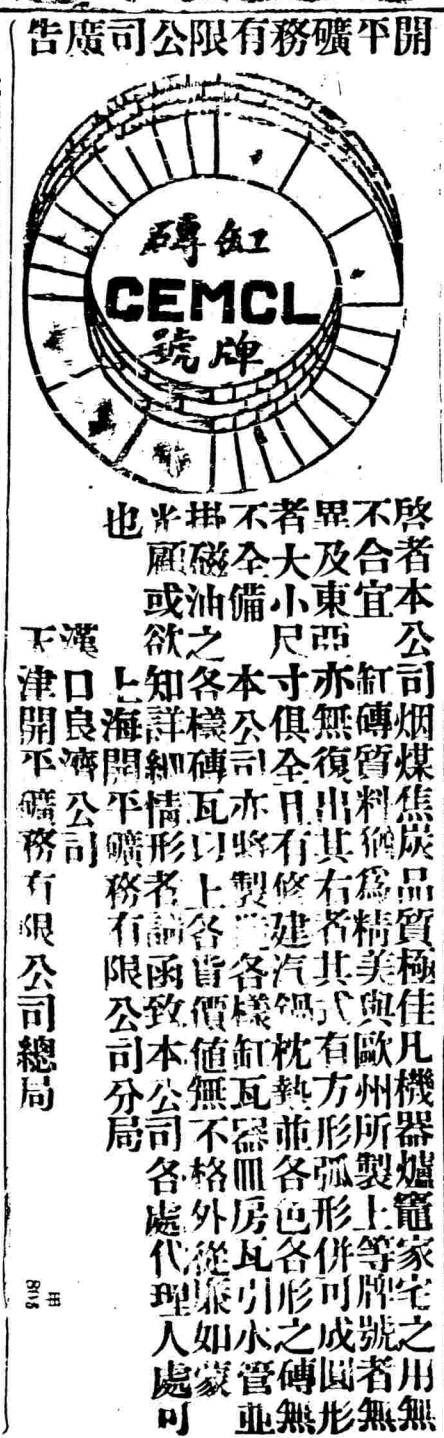 開平礦務有限公司廣告
缸磚
CEMCL
牌號
啓者本公司烟煤焦炭品質極佳凡機器爐竈家宅之用無
不合宜 缸磚質料猶爲精美與歐州所製上等牌號者無
異及東亞亦無復出其右者其式有方形弧形併可成圓形
者大小尺寸俱全且有修建汽鍋枕墊並各色各形之磚無
不全備 本公司亦將製各樣缸瓦器皿房瓦引水管並
掛磁油之各樣磚瓦以上各貨價値無不格外從廉如蒙
光顧或欲知詳細情形者請函致本公司各處代理人處可
也
上海開平礦務有限公司分局
漢口良濟公司
天津開平礦務有限公司總局